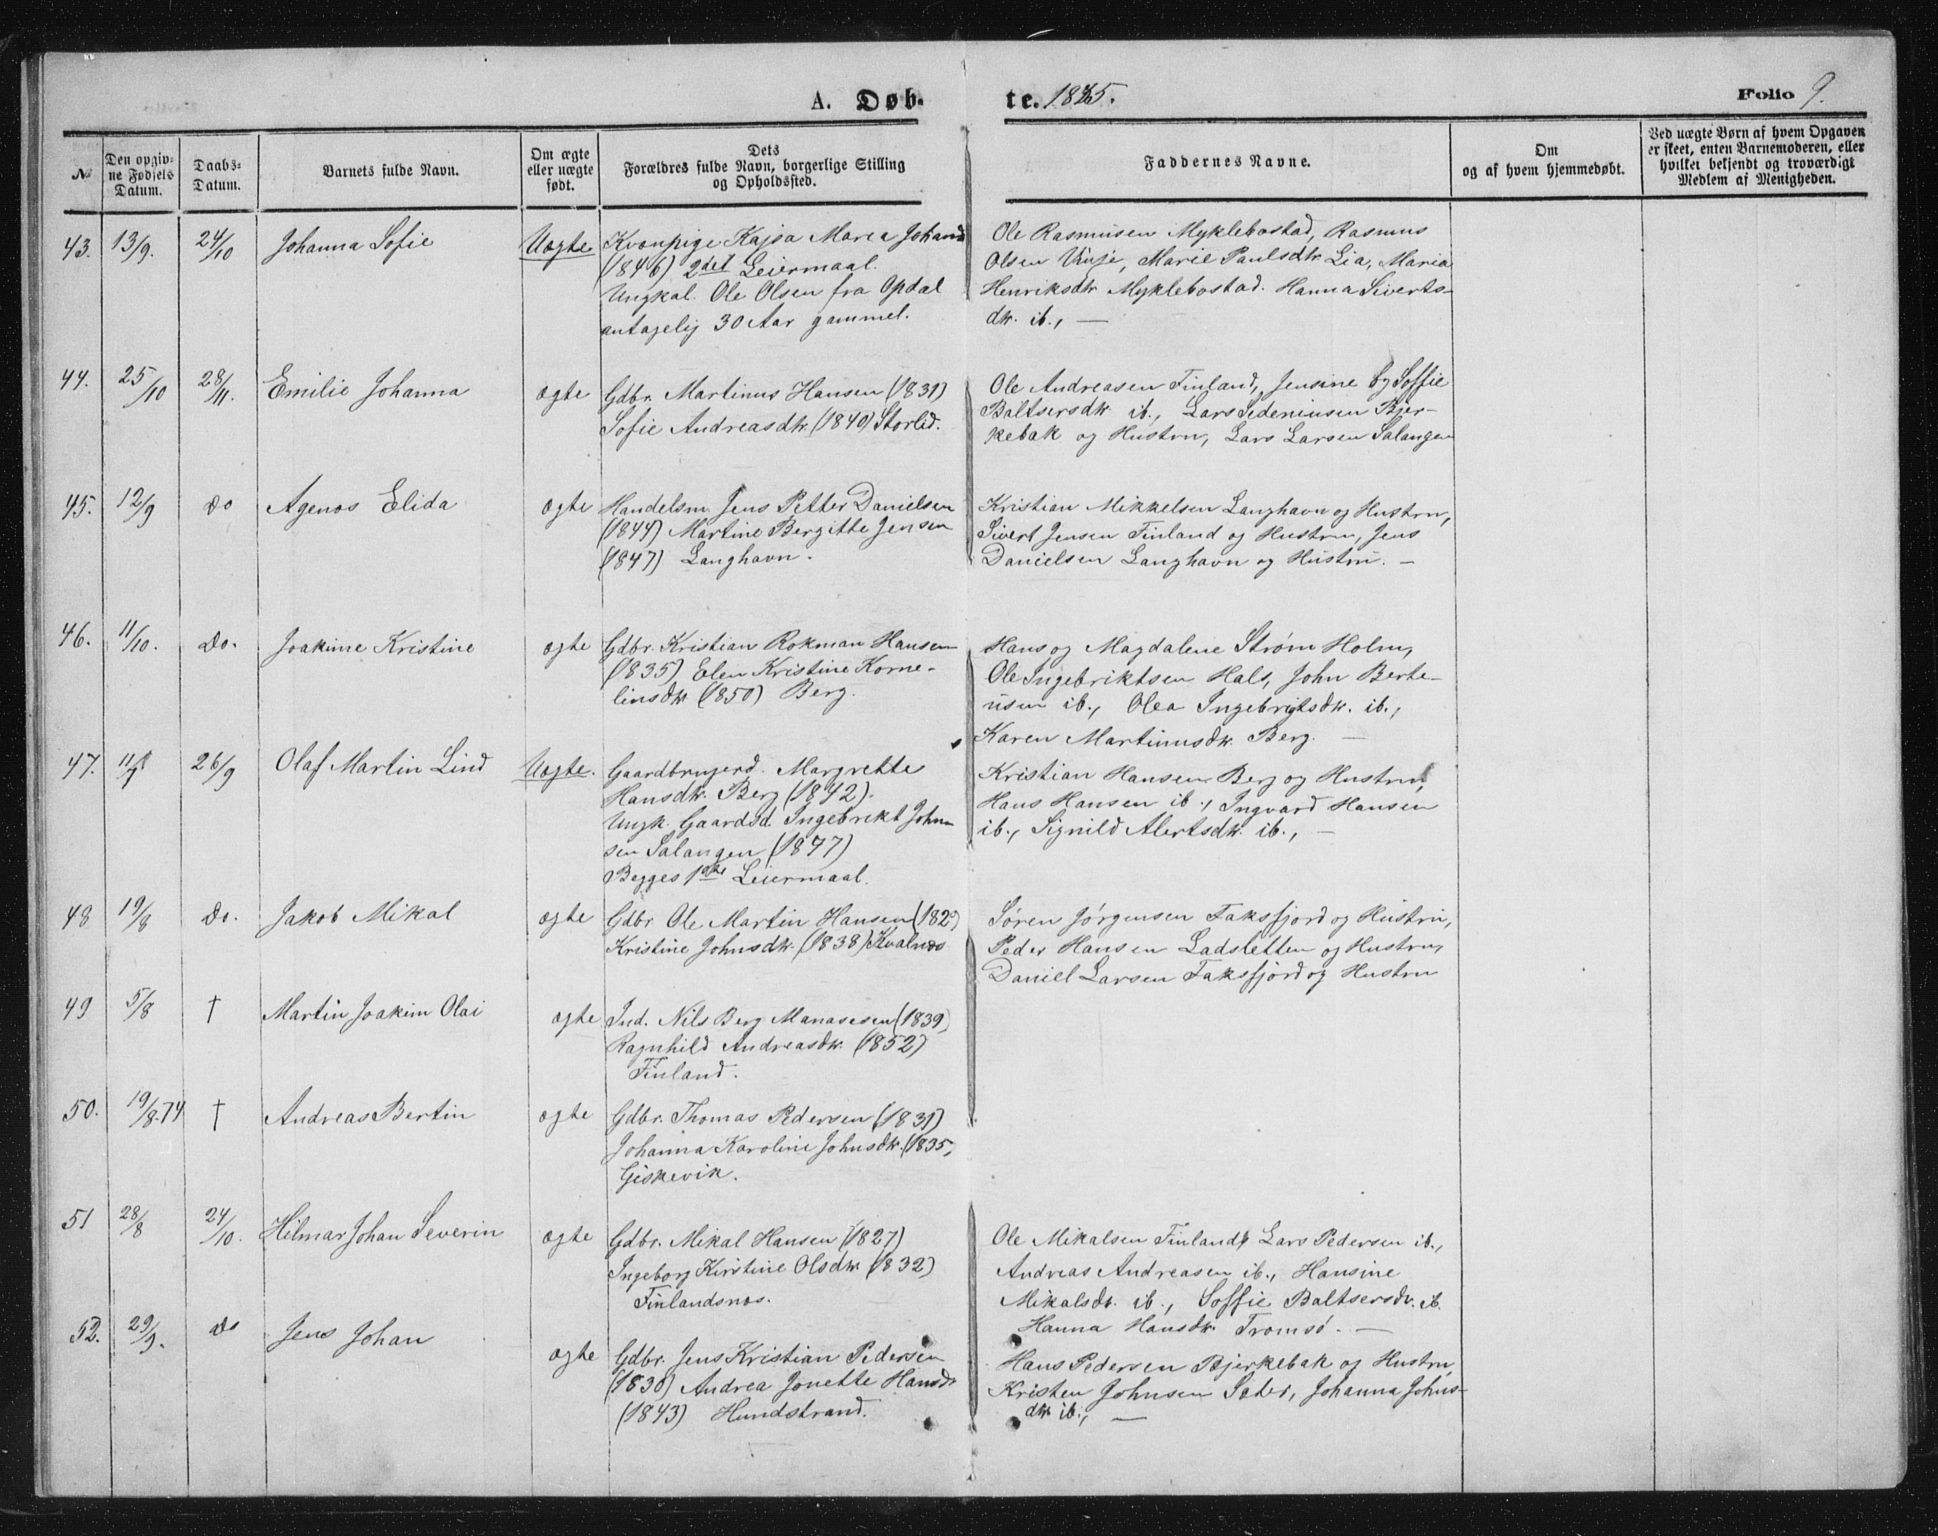 A. Døb-
te. 1875.
Folio 9.
No
Den opgiv-
ne Fødsels
Datum.
Daabs-
Datum.
Barnets fulde Navn.
Om ægte
eller uægte
født.
Dets
Forældres fulde Navn, borgerlige Stilling
og Opholdssted.
Faddernes Navne.
Om
og af hvem hjemmedøbt.
Ved uægte Børn af hvem Opgaven
er skeet, enten Barnemoderen, eller
hvilket bekjendt og troværdigt
Medlem af Menigheden.
43. 13/9. 24/10 Johanna Sofie Uægte
Kvænpige Kajsa Maria Johansd
(1846) 2det Leiermaal.
Ungkal. Ole Olsen fra Opdal
antagelig 30 Aar gammel.
Ole Rasmusen Myklebostad, Rasmus
Olsen Vinje, Marie Paulsdtr Lia, Maria
Henriksdtr Myklebostad. Hanna Siverts-
dtr. ib., —
44. 25/10 28/11. Emilie Johanna ægte
Gdbr. Martinus Hansen (1831)
Sofie Andreasdtr. (1840) Storlid.
Ole Andreasen Finland, Jensine og Soffie
Baltsersdtr ib., Lars Pedeniusen Bjer-
kebak og Hustru, Lars Larsen Salangen
45. 12/9 Do Agenos Elida ægte
Handelsm. Jens Petter Danielsen
(1844) Martine Bergitte Jensen
(1847) Langhavn.
Kristian Mikkelsen Langhavn og Hustru,
Sivert Jensen Finland og Hustru, Jens
Danielsen Langhavn og Hustru. —
46. 11/10. Do. Joakime Kristine ægte
Gdbr. Kristian Rokman Hansen
(1835) Elen Kristine Korne-
liusdtr (1850) Berg.
Hans og Magdalene Strøm Holm,
Ole Ingebriktsen Hals, John Berte-
usen ib., Olea Ingebrigtsdtr. ib.,
Karen Martinusdtr. Berg. —
47. 26/9 Olaf Martin Lind Uægte.
Gaardbrugerd. Margrethe
Hansdtr. Berg (1842).
Ungk. Gaardsd. Ingebrikt John-
sen Salangen (1847)
Begges 1ste Leiermaal.
Kristian Hansen Berg og Hustru,
Hans Hansen ib., Ingvard Hansen
ib., Signild Alertsdtr. ib., —
48 19/8 Do. Jakob Mikal ægte
Gdbr. Ole Martin Hansen (1829)
Kristine Johnsdtr. (1838) Kvalnæs
Søren Jørgensen Faksfjord og Hustru,
Peder Hansen Ladsletten og Hustru,
Daniel Larsen Faksfjord og Hustru
49 5/8 † Martin Joakim Olai ægte
Ind. Nils Berg Manasesen (1839)
Ragnhild Andreasdtr. (1852)
Finland.
50. 19/8.74 † Andreas Bertin ægte
Gdbr. Thomas Pedersen (1831)
Johanna Karoline Johnsdtr. (1835,
Giskevik.
51 28/8 24/10. Hilmar Johan Severin ægte
Gdbr. Mikal Hansen (1827)
Ingeborg Kirstine Olsdtr (1832)
Finlandsnæs.
Ole Mikalsen Finland, Lars Pedersen ib.,
Andreas Andreasen ib., Hansine
Mikalsdtr. ib., Soffie Baltsersdtr. ib.
Hanna Hansdtr. Tromsø. —
52. 29/9. Do Jens Johan ægte
Gdbr. Jens Kristian Pedersen
(1830) Andrea Jonette Hansdtr
(1843) Hundstrand.
Hans Pedersen Bjerkebak og Hustru,
Kristen Johnsen Sæter, Johanna Johns-
dtr ib., —